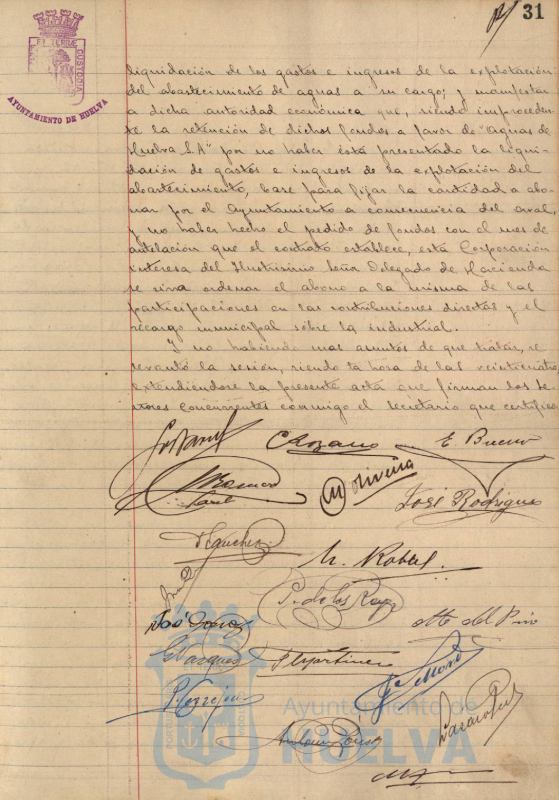 31
PORTUS CUSTODIA
AYUNTAMIENTO DE HUELVA
liquidación de los gastos e ingresos de la explotación
del abastecimiento de aguas a su cargo; y manifestar
a dicha autoridad económica que, siendo improceden-
te la retención de dichos fondos a favor de "Aguas de
Huelva S.A" por no haber ésta presentado la liqui-
dación de gastos e ingresos de la explotación del
abastecimiento, base para fijar la cantidad a abo-
nar por el Ayuntamiento a consecuencia del aval,
y no haber hecho el pedido de fondos con el mes de
antelación que el contrato establece, esta Corporación
interesa del Ilustrísimo Señor Delegado de Hacienda
se sirva ordenar el abono a la misma de las
participaciones en las contribuciones directas y el
recargo municipal sobre la industrial.
Y no habiendo mas asuntos de que tratar, se
levantó la sesión, siendo la hora de las veinticuatro,
extendiéndose la presente acta que firman los se-
ñores concurrentes conmigo el Secretario que certifico
E. Bueno
M Oliveira
José Rodriguez
P. de los Reyes
del Pino
José
Vazquez
F Martinez
P. Cerrejon
Ayuntamiento de
HUELVA